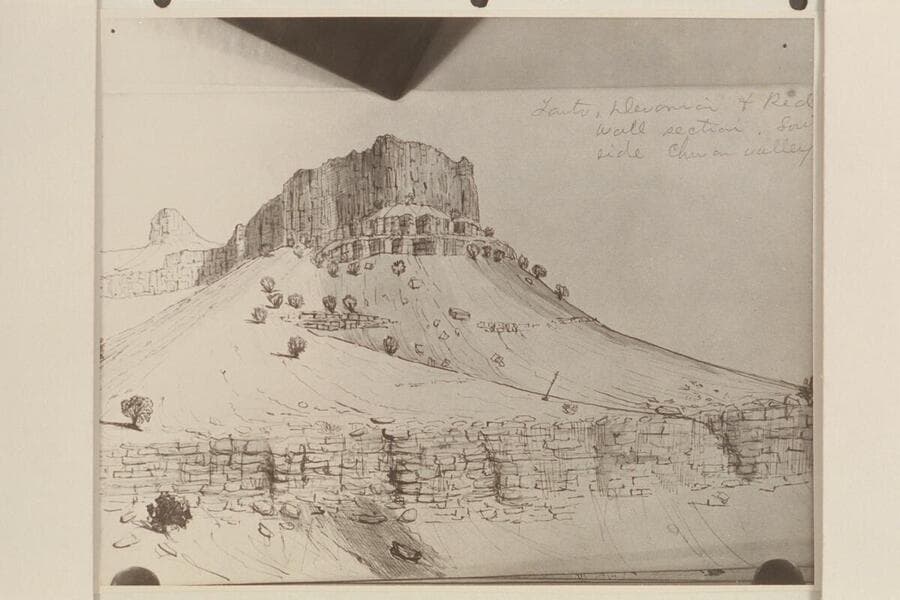 Tonto, Devonian & Red
wall section. Sou
side Chuar valley